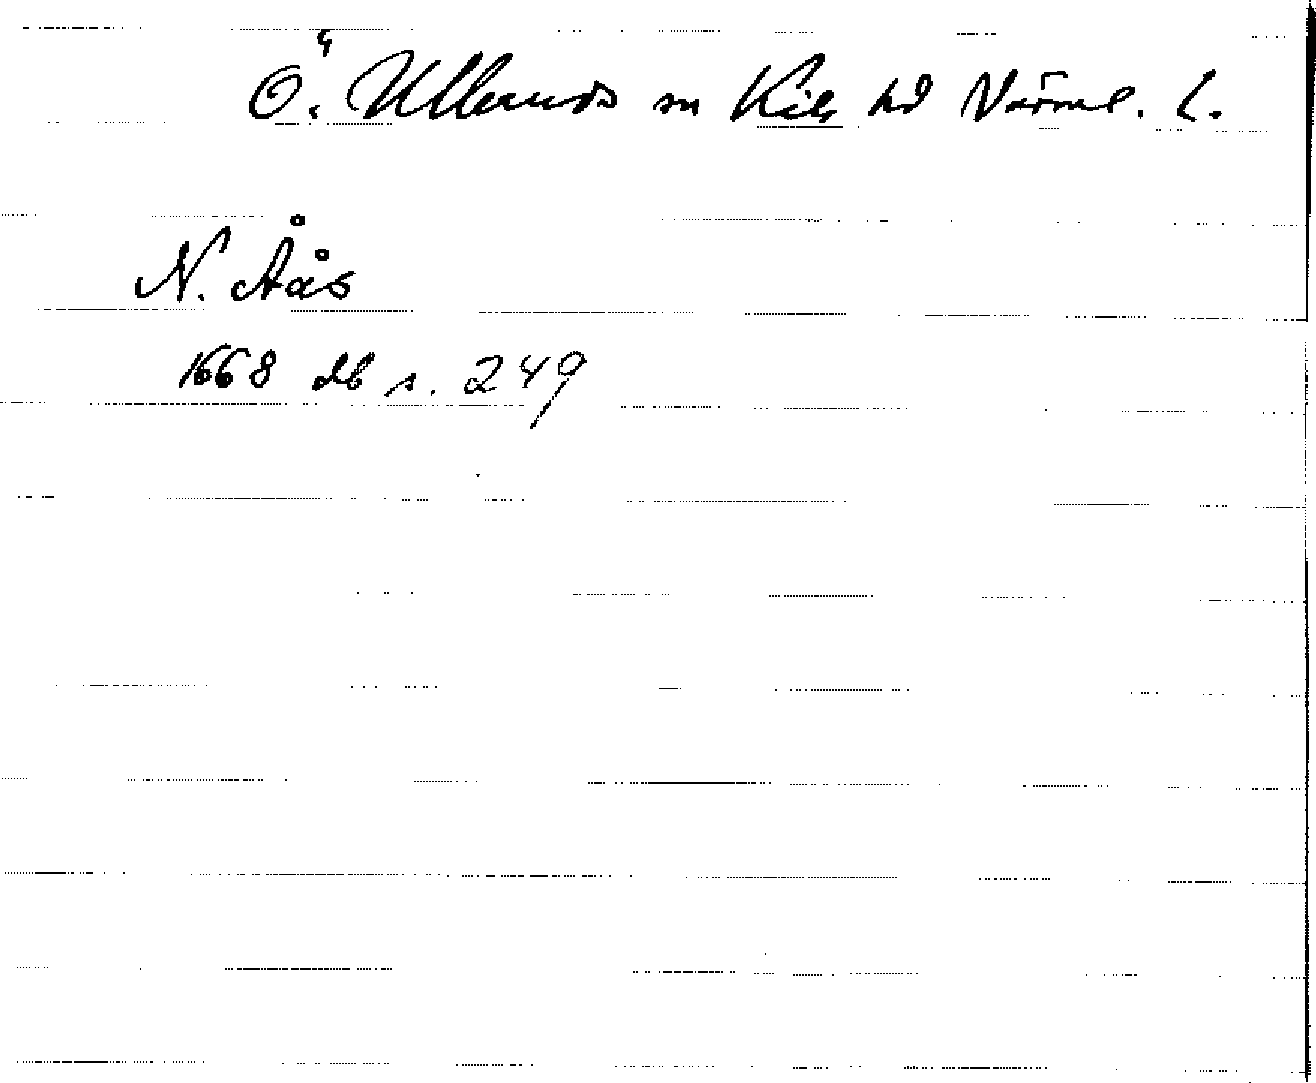 Ö. Ulleruds sn Kils hd Värml. l.
N. Åås
1668 db s. 249